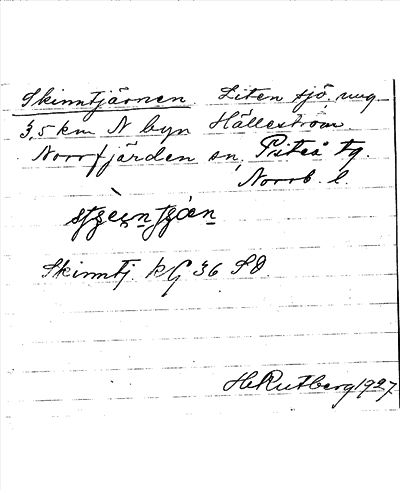 Skinntjärnen. Liten sjö. ung.
3,5 km N byn Hälleström
Norrfjärden sn, Piteå tg.
Norrb. l.
Skinntj. kG 36 SO.
H. Rutberg 1927.